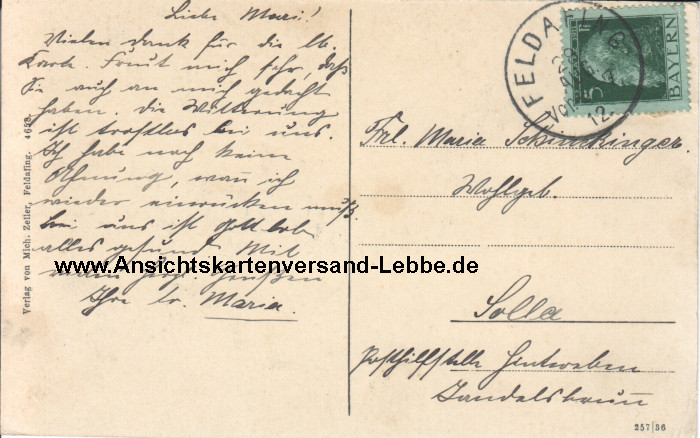 Liebe Mari!
Vielen dank für die lb.
Karte. Freut mich sehr, daß
Sie auch an mich gedacht
haben. die Witterung
ist trostlos bei uns.
Ich habe noch keine
Ahnung, wann ich
wieder einrücken muß.
bei uns ist Gott lob
alles gesund. Mit
vielen herzl. Grüßen
Ihre lb. Maria.
Verlag von Mich. Zeiler, Feldafing.
www.Ansichtskartenversand-Lebbe.de
FELDAFING
12
5
BAYERN
Frl. Maria
Wohlgeb.
Solla
Posthilfstelle
257/36